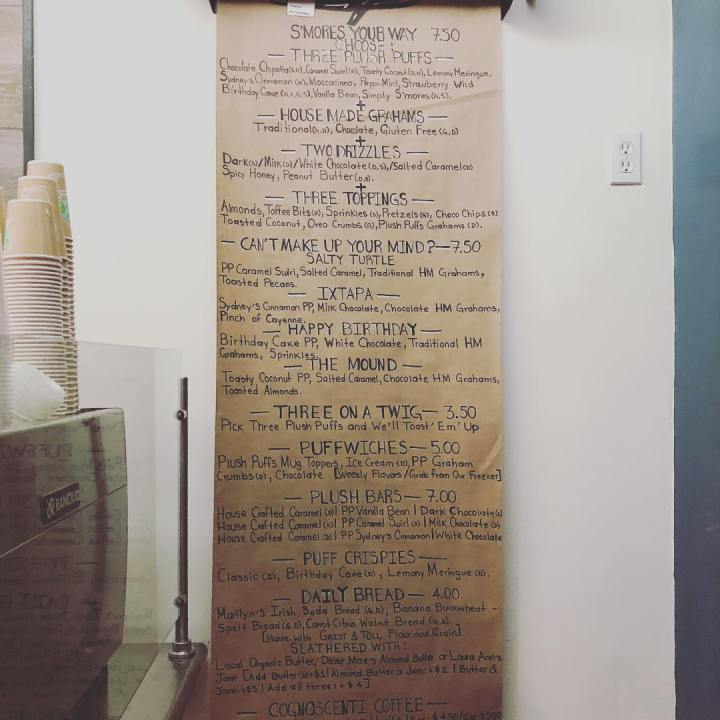 S'MORES YOUR WAY 7.50
CHOOSE:
— THREE PLUSH PUFFS —
Chocolate Chipetta(S,D), Caramel Swirl(D), Toasty Coconut(D,N), Lemony Meringue,
Sydney's Cinnamon (N), Moccaccino, Peppi-Mint, Strawberry Wild
Birthday Cake (D,G,S), Vanilla Bean, Simply S'mores(G,S).
+
— HOUSE MADE GRAHAMS —
Traditional(G,D), Chocolate, Gluten Free(G,D)
+
— TWO DRIZZLES —
Dark(S)/Milk(D)/White Chocolate(D,S)/Salted Caramel(D)
Spicy Honey, Peanut Butter(D,S).
+
— THREE TOPPINGS —
Almonds, Toffee Bits(D), Sprinkles (S), Pretzels(G), Choco Chips(S)
Toasted Coconut, Oreo Crumbs(G), Plush Puffs Grahams (D).
— CAN'T MAKE UP YOUR MIND?—7.50
SALTY TURTLE
PP Caramel Swirl, Salted Caramel, Traditional HM Grahams,
Toasted Pecans.
— IXTAPA —
Sydney's Cinnamon PP, Milk Chocolate, Chocolate HM Grahams,
Pinch of Cayenne.
— HAPPY BIRTHDAY —
Birthday Cake PP, White Chocolate, Traditional HM
Grahams, Sprinkles.
— THE MOUND —
Toasty Coconut PP, Salted Caramel, Chocolate HM Grahams,
Toasted Almonds.
— THREE ON A TWIG— 3.50
Pick Three Plush Puffs and We'll Toast 'Em' Up
— PUFFWICHES — 5.00
Plush Puffs Mug Toppers, Ice Cream (D), PP Graham
Crumbs(D), Chocolate [Weekly Flavors/Grab from Our Freezer]
— PLUSH BARS — 7.00
House Crafted Caramel (D) | PP Vanilla Bean | Dark Chocolate(S)
House Crafted Caramel (D) | PP Caramel Swirl (D) | Milk Chocolate (D)
House Crafted Caramel (D) | PP Sydney's Cinnamon | White Chocolate
— PUFF CRISPIES —
Classic (D), Birthday Cake (D), Lemony Meringue (D).
— DAILY BREAD — 4.00
Marilyn's Irish Soda Bread (G,D), Banana Buckwheat -
Spelt Bread (G,D), Carrot Citrus Walnut Bread (G,D).
[Made with GRIST & TOLL Flour and Grain]
SLATHERED WITH:
Local Organic Butter, Daisy Mae's Almond Butter or Laura Ann's
Jam [Add Butter(D)+$1| Almond Butter or Jam:+$2 | Butter &
Jam:+$5 | Add all three:+$4]
— COGNOSCENTI COFFEE —
RANCILIO